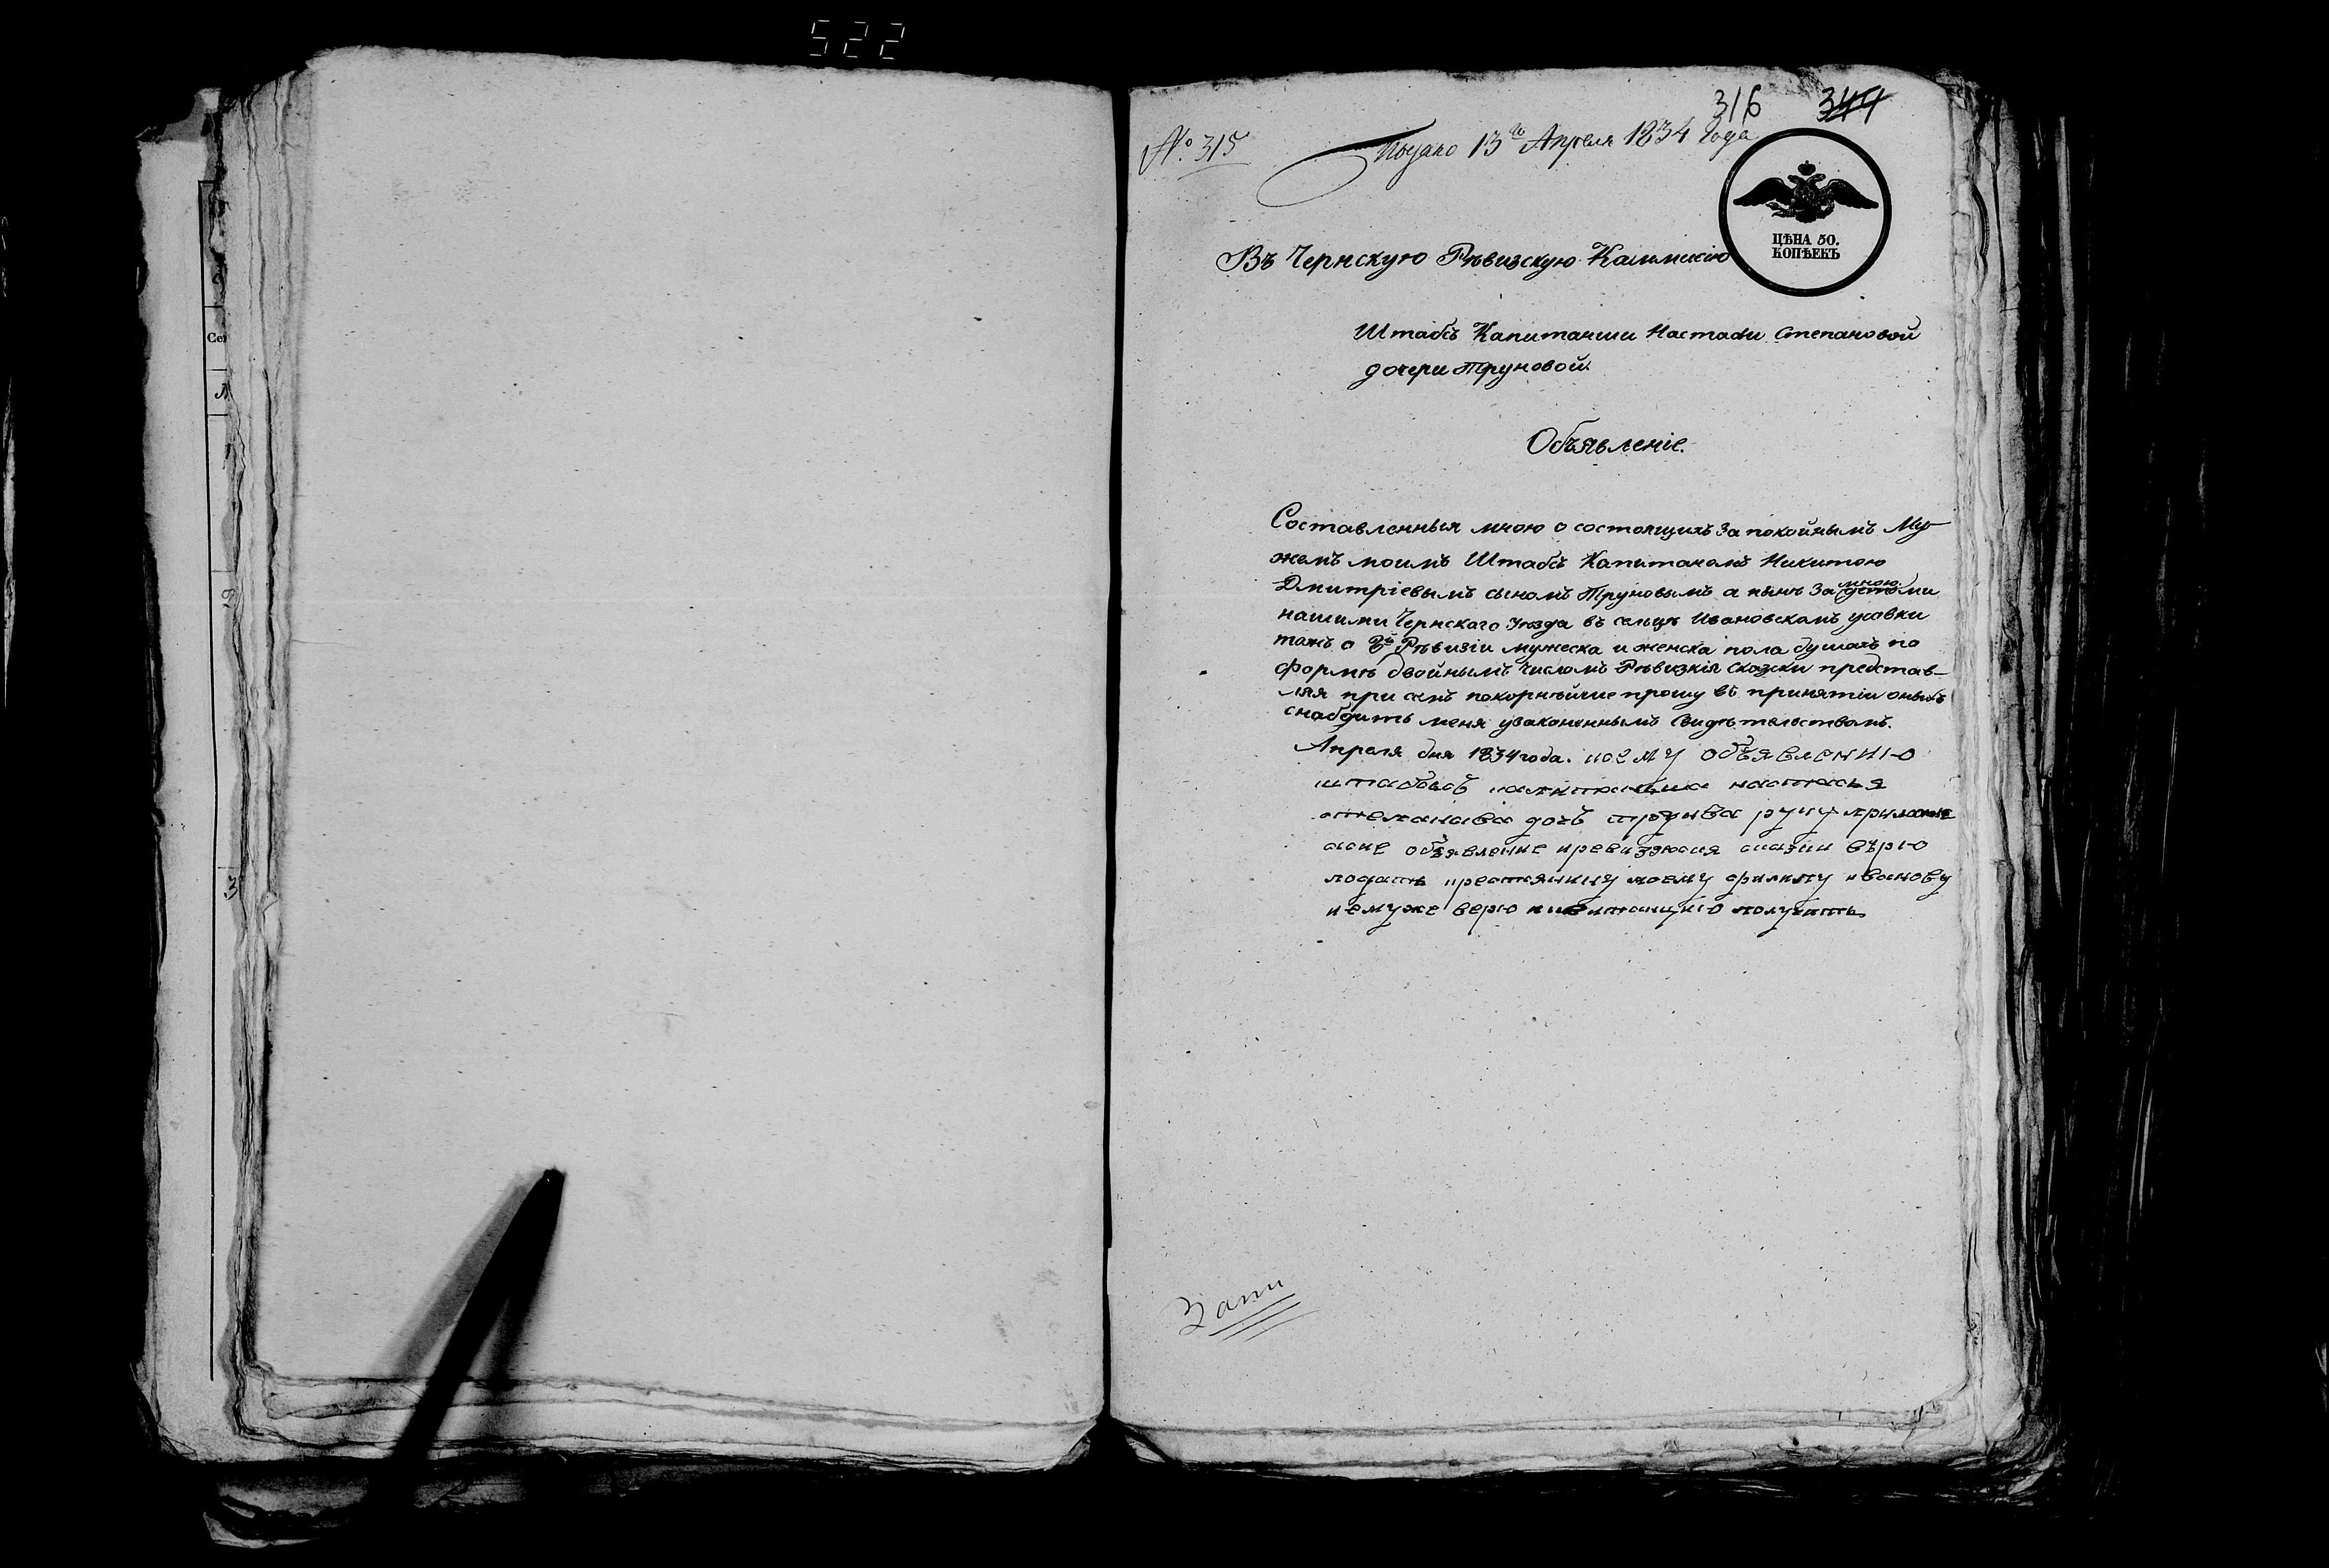 522
316 344
№ 315
Подано 13го Апреля 1834 года
ЦѢНА 50.
КОПѢЕКЪ
Въ Чернскую Рѣвизскую Каммисію
Штабсъ Капитанши Настасьи Степановой
дочери Труновой.
Объявленіе.
Составленныя мною о состоящихъ за покойнымъ Му
жемъ моимъ Штабсъ Капитаномъ Никитою
Дмитріевымъ сыномъ Труновымъ а нынѣ за мною детьми
нашими Чернскаго уѣзда въ сельцѣ Ивановскомъ
о 8й Рѣвизіи мужеска и женска пола душахъ по
формѣ двойнымъ числомъ Рѣвизкія Сказки представ-
ляя при семъ покорнѣйше прошу въ принятіи оныхъ
снабдить меня узаконеннымъ Свидѣтельствомъ.
Апреля дня 1834 года. кое му объявлению
капитанша настасья
дочь трунва руку
объявление ирѣвизския сказки вѣрю
подать крестянину моему филипу иванову
иемуже верю получить